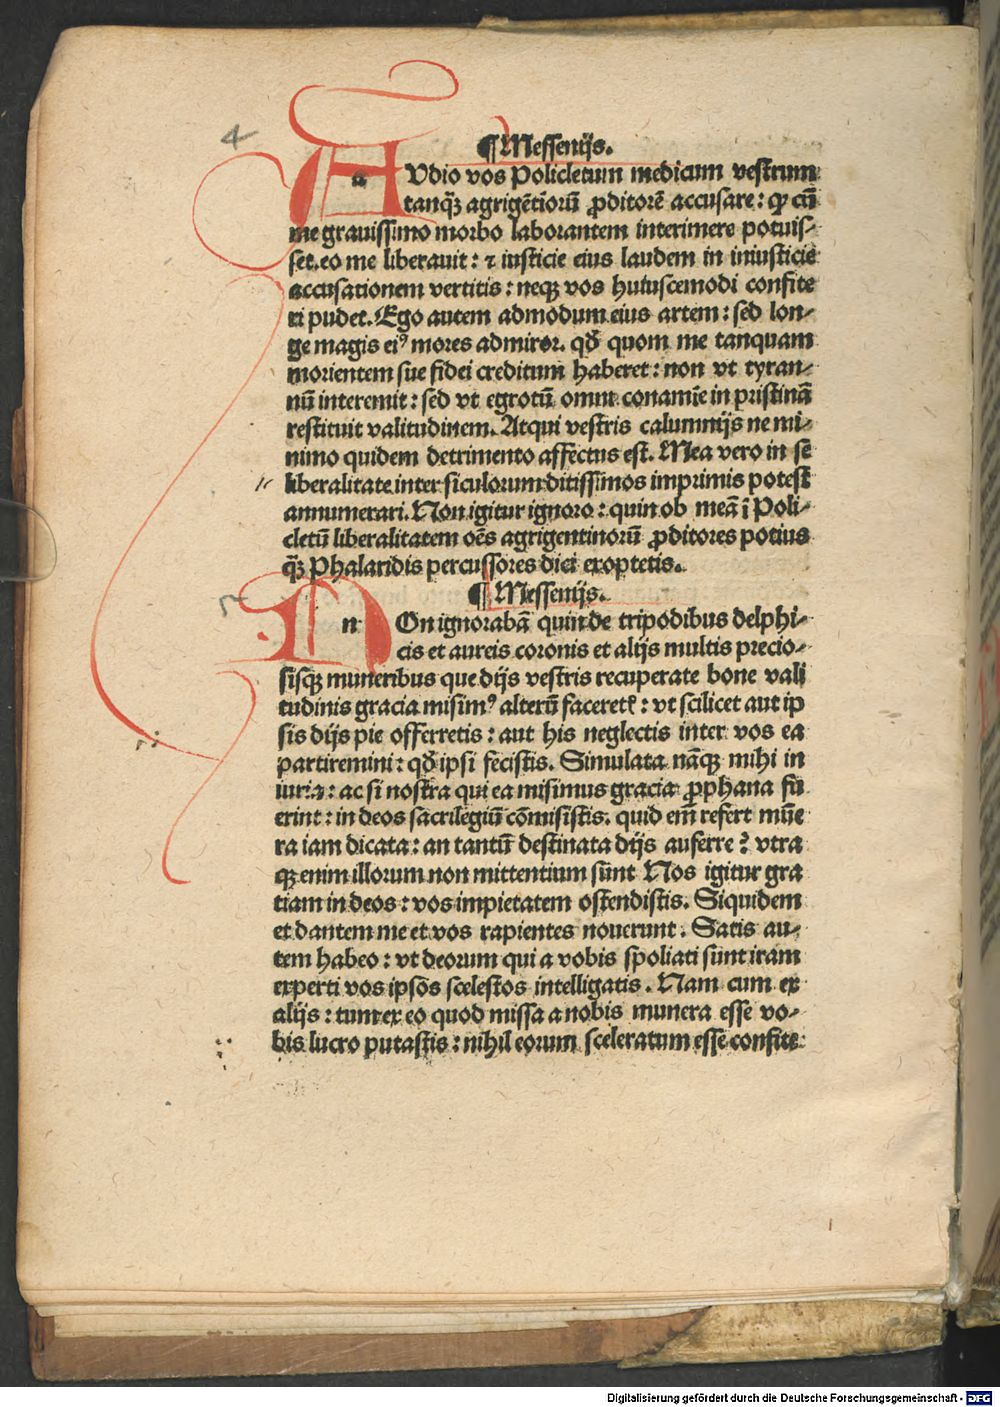 4
¶ Messenijs.
AUdio vos Policletum medicum vestrum
tanqꝫ agrigētioꝝ ꝓditorē accusare: qꝛ cū
me grauissimo morbo laborantem interimere potuis⸗
set. eo me liberauit: ⁊ iusticie eius laudem in iniusticie
accusationem vertitis: neqꝫ vos huiuscemodi confite
ri pudet. Ego autem admodum eius artem: sed lon⸗
ge magis eiꝰ mores admiror. qđ quom me tanquam
morientem sue fidei creditum haberet: non vt tyran⸗
nū interemit: sed vt egrotū omni conamīe in pristinā
restituit valitudinem. Atqui vestris calumnijs ne mi⸗
nimo quidem detrimento affectus est. Mea vero in se
liberalitate inter siculorum ditissimos imprimis potest
annumerari. Non igitur ignoro: quin ob meā ī Poli⸗
cletū liberalitatem oēs agrigentinorū ꝓditores potius
qꝫ Phalaridis percussores dici exoptetis.
5
¶ Messenijs.
NOn ignorabā quin de tripodibus delphi⸗
cis et aureis coronis et alijs multis precio⸗
sisqꝫ muneribus que dijs vestris recuperate bone vali
tudinis gracia misimꝰ alterū faceretꝭ: vt scilicet aut ip
sis dijs pie offerretis: aut his neglectis inter vos ea
partiremini: qđ ipsi fecistis. Simulata nāqꝫ mihi in
iuria: ac si nostra qui ea misimus gracia ꝓphana fu
erint: in deos sacrilegiū cōmisistis. quid em̄ refert mūe
ra iam dicata: an tantū destinata dijs auferre? vtra
qꝫ enim illorum non mittentium sūnt Nos igitur gra
tiam in deos: vos impietatem ostendistis. Siquidem
et dantem me et vos rapientes nouerunt. Satis au⸗
tem habeo: vt deorum qui a vobis spoliati sunt iram
experti vos ipsos scelestos intelligatis. Nam cum ex
alijs: tum ex eo quod missa a nobis munera esse vo⸗
bis lucro putastis: nihil eorum sceleratum esse confite
Digitalisierung gefördert durch die Deutsche Forschungsgemeinschaft - DFG